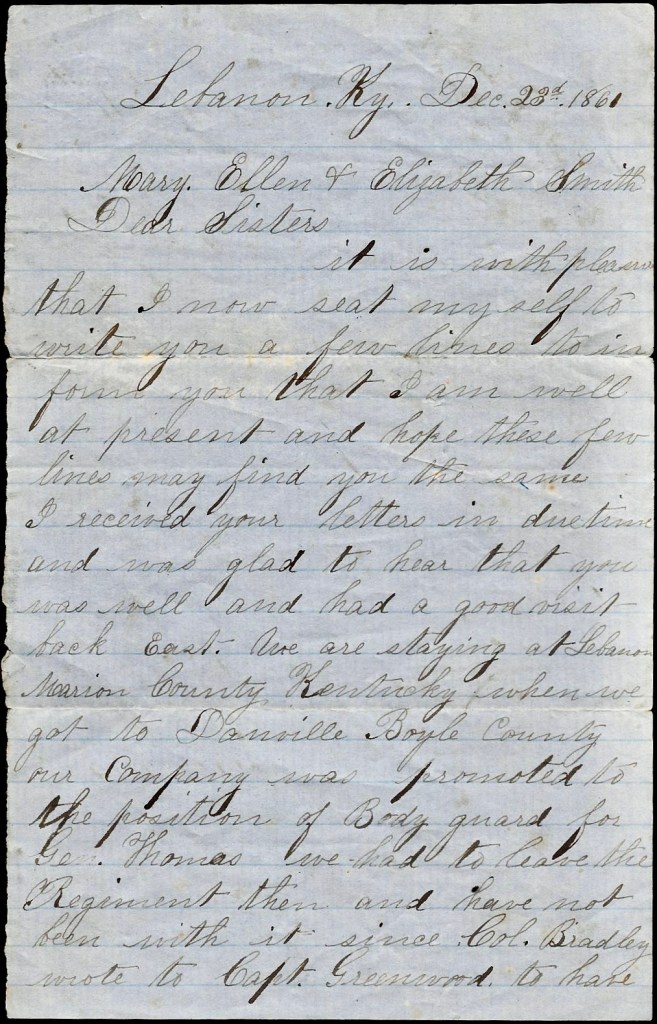 Lebanon. Ky. Dec. 23d. 1861
Mary. Ellen & Elizabeth Smith
Dear Sisters
it is with pleasure
that I now seat my self to
write you a few lines to in
form you that I am well
at present and hope these few
lines may find you the same
I received your letters in due time
and was glad to hear that you
was well and had a good visit
back East. We are staying at Lebanon
Marion County Kentucky when we
got to Danville Boyle County
our Company was promoted to
the position of Body guard for
Gen. Thomas we had to leave the
Regiment then and have not
been with it since Col. Bradley
wrote to Capt. Greenwood to have